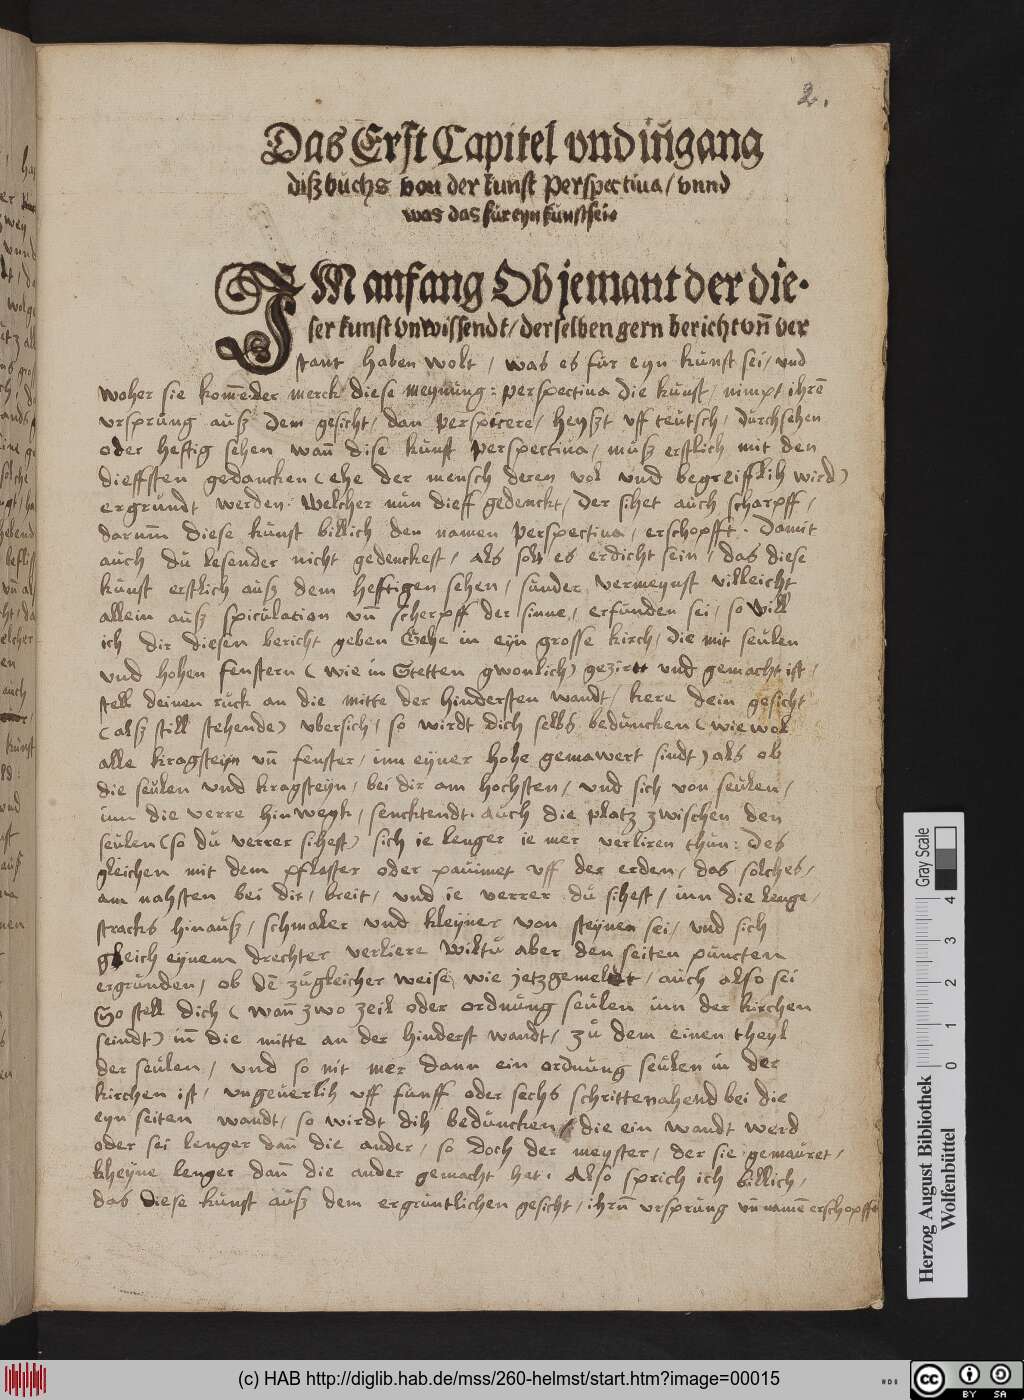 2.
Das Erst Capitel vnd ingang
diß buchs von der kunst Perspectiua / vnnd
was das für eyn kunst sei.
IM anfang Ob jemant der die-
ser kunst vnwissendt / derselben gern bericht vñ ver
stant haben wolt / was es für eyn kunst sei / vnd
woher sie kom̃e der merck diese meynung: perspectiua die kunst / nimpt ihrẽ
vrsprung auß dem gesicht / dan perspicere / heyßt vff teutsch / durchsehen
oder heftig sehen wañ dise kunst perspectiua / muß erstlich mit den
dieffsten gedancken (ehe der mensch deren vol vnd begreifflich wird)
ergrundt werden: Welcher nun dieff gedenckt / der sihet auch scharpff /
darum̃ diese kunst billich den namen perspectiua / erschopfft. Damit
auch du lesender nicht gedenckest / als solt es erdicht sein / das diese
kunst erstlich auß dem hefftigen sehen / sunder vermeynst villeicht
allein auß spiculation vñ scherpff der sinne / erfunden sei / so will
ich dir diesen bericht geben Gehe in eyn grosse kirch / die mit seulen
vnd hohen fenstern (wie in Stetten gwonlich) gezirtt vnd gemacht ist /
stell deinen ruck an die mitte der hindersten wandt / kere dein gesicht
(alß still stehende) vbersich / so wirdt dich selbs beduncken (wie wol
alle kragsteyn vñ fenster / inn eyner hohe gemawert sindt) als ob
die seulen vnd kragsteyn / bei dir am hochsten / vnd sich von seulen /
inn die verre hinwegk / sencktendt. auch die platz zwischen den
seulen (so du verrer sihest) sich ie lenger ie mer verliren thun: Des
gleichen mit dem pflaster oder pauimet vff der erden / das solches /
am nahsten bei dir / breit / vnd ie verrer du sihest / inn die lenge /
stracks hinauß / schmaler vnd kleyner von steynen sei / vnd sich
gleich eynem drechter verliere Wiltu aber den seiten puncten
ergrunden / ob dẽ zugleicher weise wie jetzgemeldt / auch also sei
So stell dich (wañ zwo zeil oder ordnung seulen inn der kirchen
seindt) iñ die mitte an der hinderst wandt / zu dem einen theyl
der seulen / vnd so nit mer dann ein ordnung seulen in der
kirchen ist / vngeuerlih vff funff oder sechs schritte nahend bei die
eyn seiten wandt / so wirdt dih beduncken / die ein wandt werd
oder sei lenger dañ die ander / so doch der meyster / der sie gemauret /
kheyne lenger dañ die ander gemacht het. Also sprich ich billich /
das diese kunst auß dem ergruntlichen gesicht / ihrñ vrsprung vñ namẽ erschopfft
Gray Scale
0 1 2 3 4
Herzog August Bibliothek
Wolfenbüttel
(c) HAB http://diglib.hab.de/mss/260-helmst/start.htm?image=00015
HAB
cc BY SA